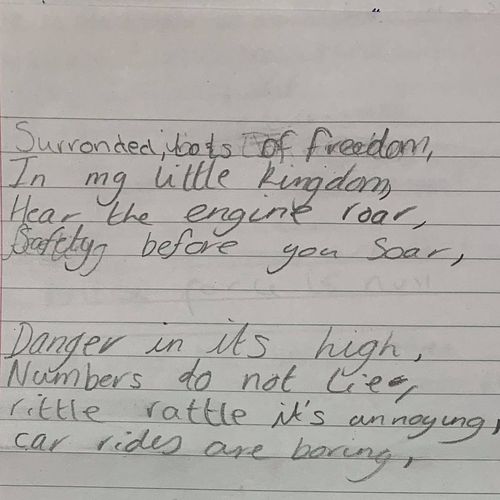 Surronded, bots of freedom,
In my little kingdom,
Hear the engine roar,
Safety, before you soar,
Danger in its high,
Numbers do not lie,
rittle rattle it's annoying,
car rides are boring,